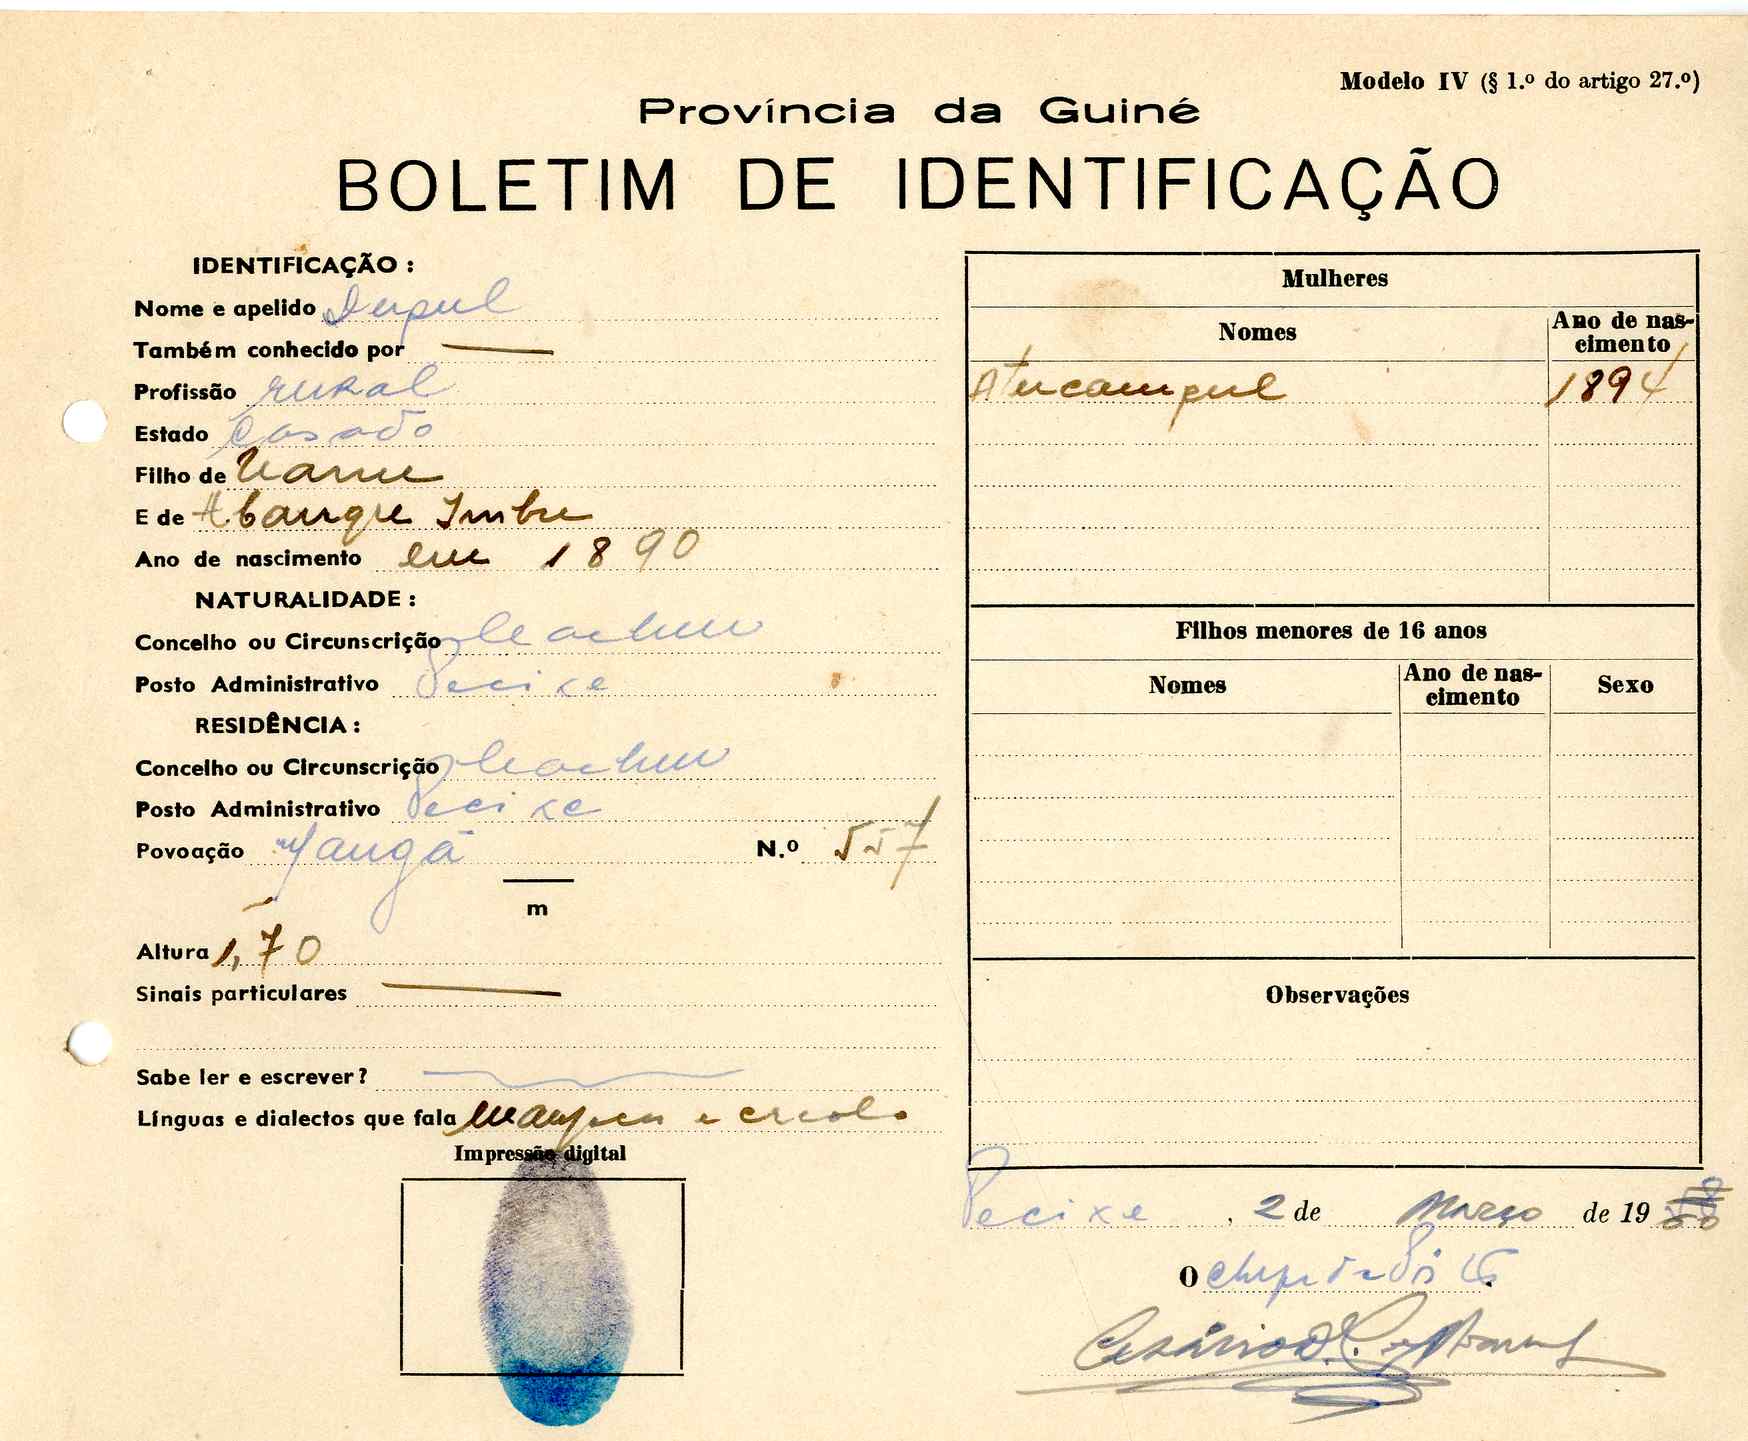 Modelo IV (§ 1.º do artigo 27.º)
Província da Guiné
BOLETIM DE IDENTIFICAÇÃO
IDENTIFICAÇÃO :
Nome e apelido
Também conhecido por —
Profissão rural
Estado Casado
Filho de
E de
Ano de nascimento em 1890
NATURALIDADE :
Concelho ou Circunscrição Cacheu
Posto Administrativo Pecixe
RESIDÊNCIA :
Concelho ou Circunscrição Cacheu
Posto Administrativo Pecixe
Povoação N.º 557
m
Altura 1,70
Sinais particulares —
Sabe ler e escrever?
Línguas e dialectos que fala e creolo
Impressão digital
Mulheres
Nomes Ano de nas-
cimento
1894
Filhos menores de 16 anos
Nomes Ano de nas-
cimento Sexo
Observações
Pecixe, 2 de Março de 19
O